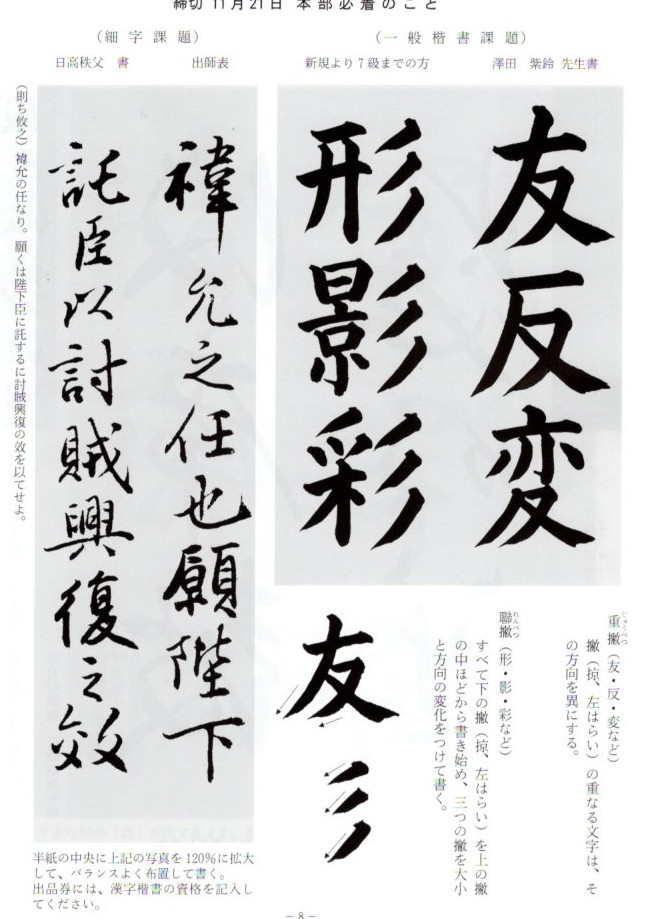 締切 11月21日 本部必着のこと
（一般楷書課題）
新規より7級までの方　澤田　紫鈴 先生書
友反変
形影彩
重撇（友・反・変など）
じゅうべつ
撇（掠、左はらい）の重なる文字は、そ
の方向を異にする。
聯撇（形・影・彩など）
れんべつ
すべて下の撇（掠、左はらい）を上の撇
の中ほどから書き始め、三つの撇を大小
と方向の変化をつけて書く。
友
彡
（細字課題）
日高秩父　書　出師表
禕允之任也願陛下
託臣以討賊興復之效
（則ち攸之）禕允の任なり。願くは陛下臣に託するに討賊興復の效を以てせよ。
半紙の中央に上記の写真を120％に拡大
して、バランスよく布置して書く。
出品券には、漢字楷書の資格を記入し
てください。
－8－